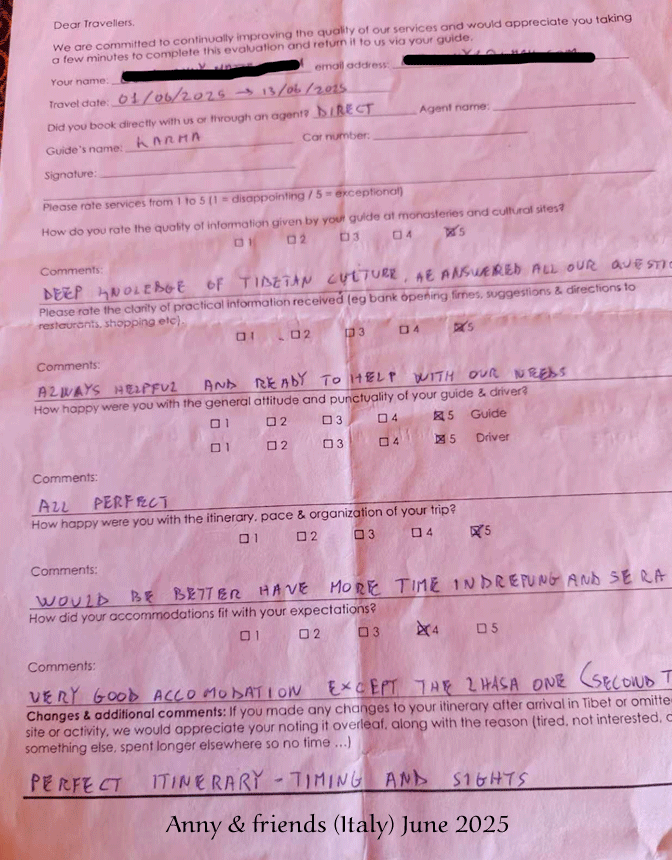 Dear Travellers,
We are committed to continually improving the quality of our services and would appreciate you taking
a few minutes to complete this evaluation and return it to us via your guide.
Your name: email address:
Travel date: 01/06/2025 → 13/06/2025
Did you book directly with us or through an agent? DIRECT Agent name:
Guide's name: KARMA Car number:
Signature:
Please rate services from 1 to 5 (1 = disappointing / 5 = exceptional)
How do you rate the quality of information given by your guide at monasteries and cultural sites?
☐ 1 ☐ 2 ☐ 3 ☐ 4 ☒ 5
Comments:
DEEP KNOLEDGE OF TIBETAN CULTURE, HE ANSWERED ALL OUR QUESTIO
Please rate the clarity of practical information received (eg bank opening times, suggestions & directions to
restaurants, shopping etc).
☐ 1 ☐ 2 ☐ 3 ☐ 4 ☒ 5
Comments:
ALWAYS HELPFUL AND READY TO HELP WITH OUR NEEDS
How happy were you with the general attitude and punctuality of your guide & driver?
☐ 1 ☐ 2 ☐ 3 ☐ 4 ☒ 5 Guide
☐ 1 ☐ 2 ☐ 3 ☐ 4 ☒ 5 Driver
Comments:
ALL PERFECT
How happy were you with the itinerary, pace & organization of your trip?
☐ 1 ☐ 2 ☐ 3 ☐ 4 ☒ 5
Comments:
WOULD BE BETTER HAVE MORE TIME IN DREPUNG AND SERA
How did your accommodations fit with your expectations?
☐ 1 ☐ 2 ☐ 3 ☒ 4 ☐ 5
Comments:
VERY GOOD ACCOMODATION EXCEPT THE LHASA ONE (SECOND T
Changes & additional comments: If you made any changes to your itinerary after arrival in Tibet or omitte
site or activity, we would appreciate your noting it overleaf, along with the reason (tired, not interested,
something else, spent longer elsewhere so no time ...)
PERFECT ITINERARY - TIMING AND SIGHTS
Anny & friends (Italy) June 2025